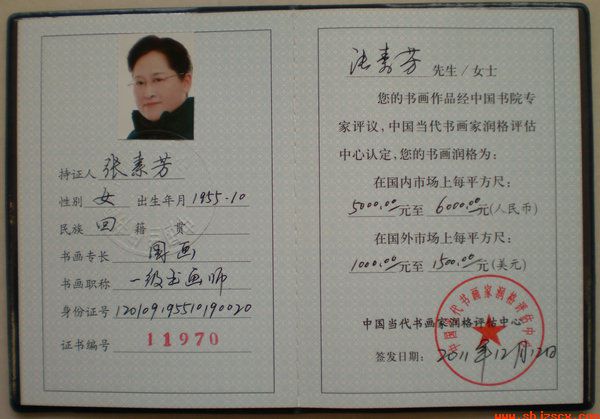 持证人 张素芳
性别 女 出生年月 1955-10
民族 回 籍贯
书画专长 国画
书画职称 一级书画师
身份证号 120109195510190020
证书编号 11970
张素芳 先生/女士
您的书画作品经中国书院专
家评议，中国当代书画家润格评估
中心认定，您的书画润格为：
在国内市场上每平方尺：
5000.00元至 6000.00元(人民币)
在国外市场上每平方尺：
1000.00元至 1500.00元(美元)
中国当代书画家润格评估中心
中国当代书画家润格评估中心
签发日期：2011年12月12日
www.sbjzscx.com